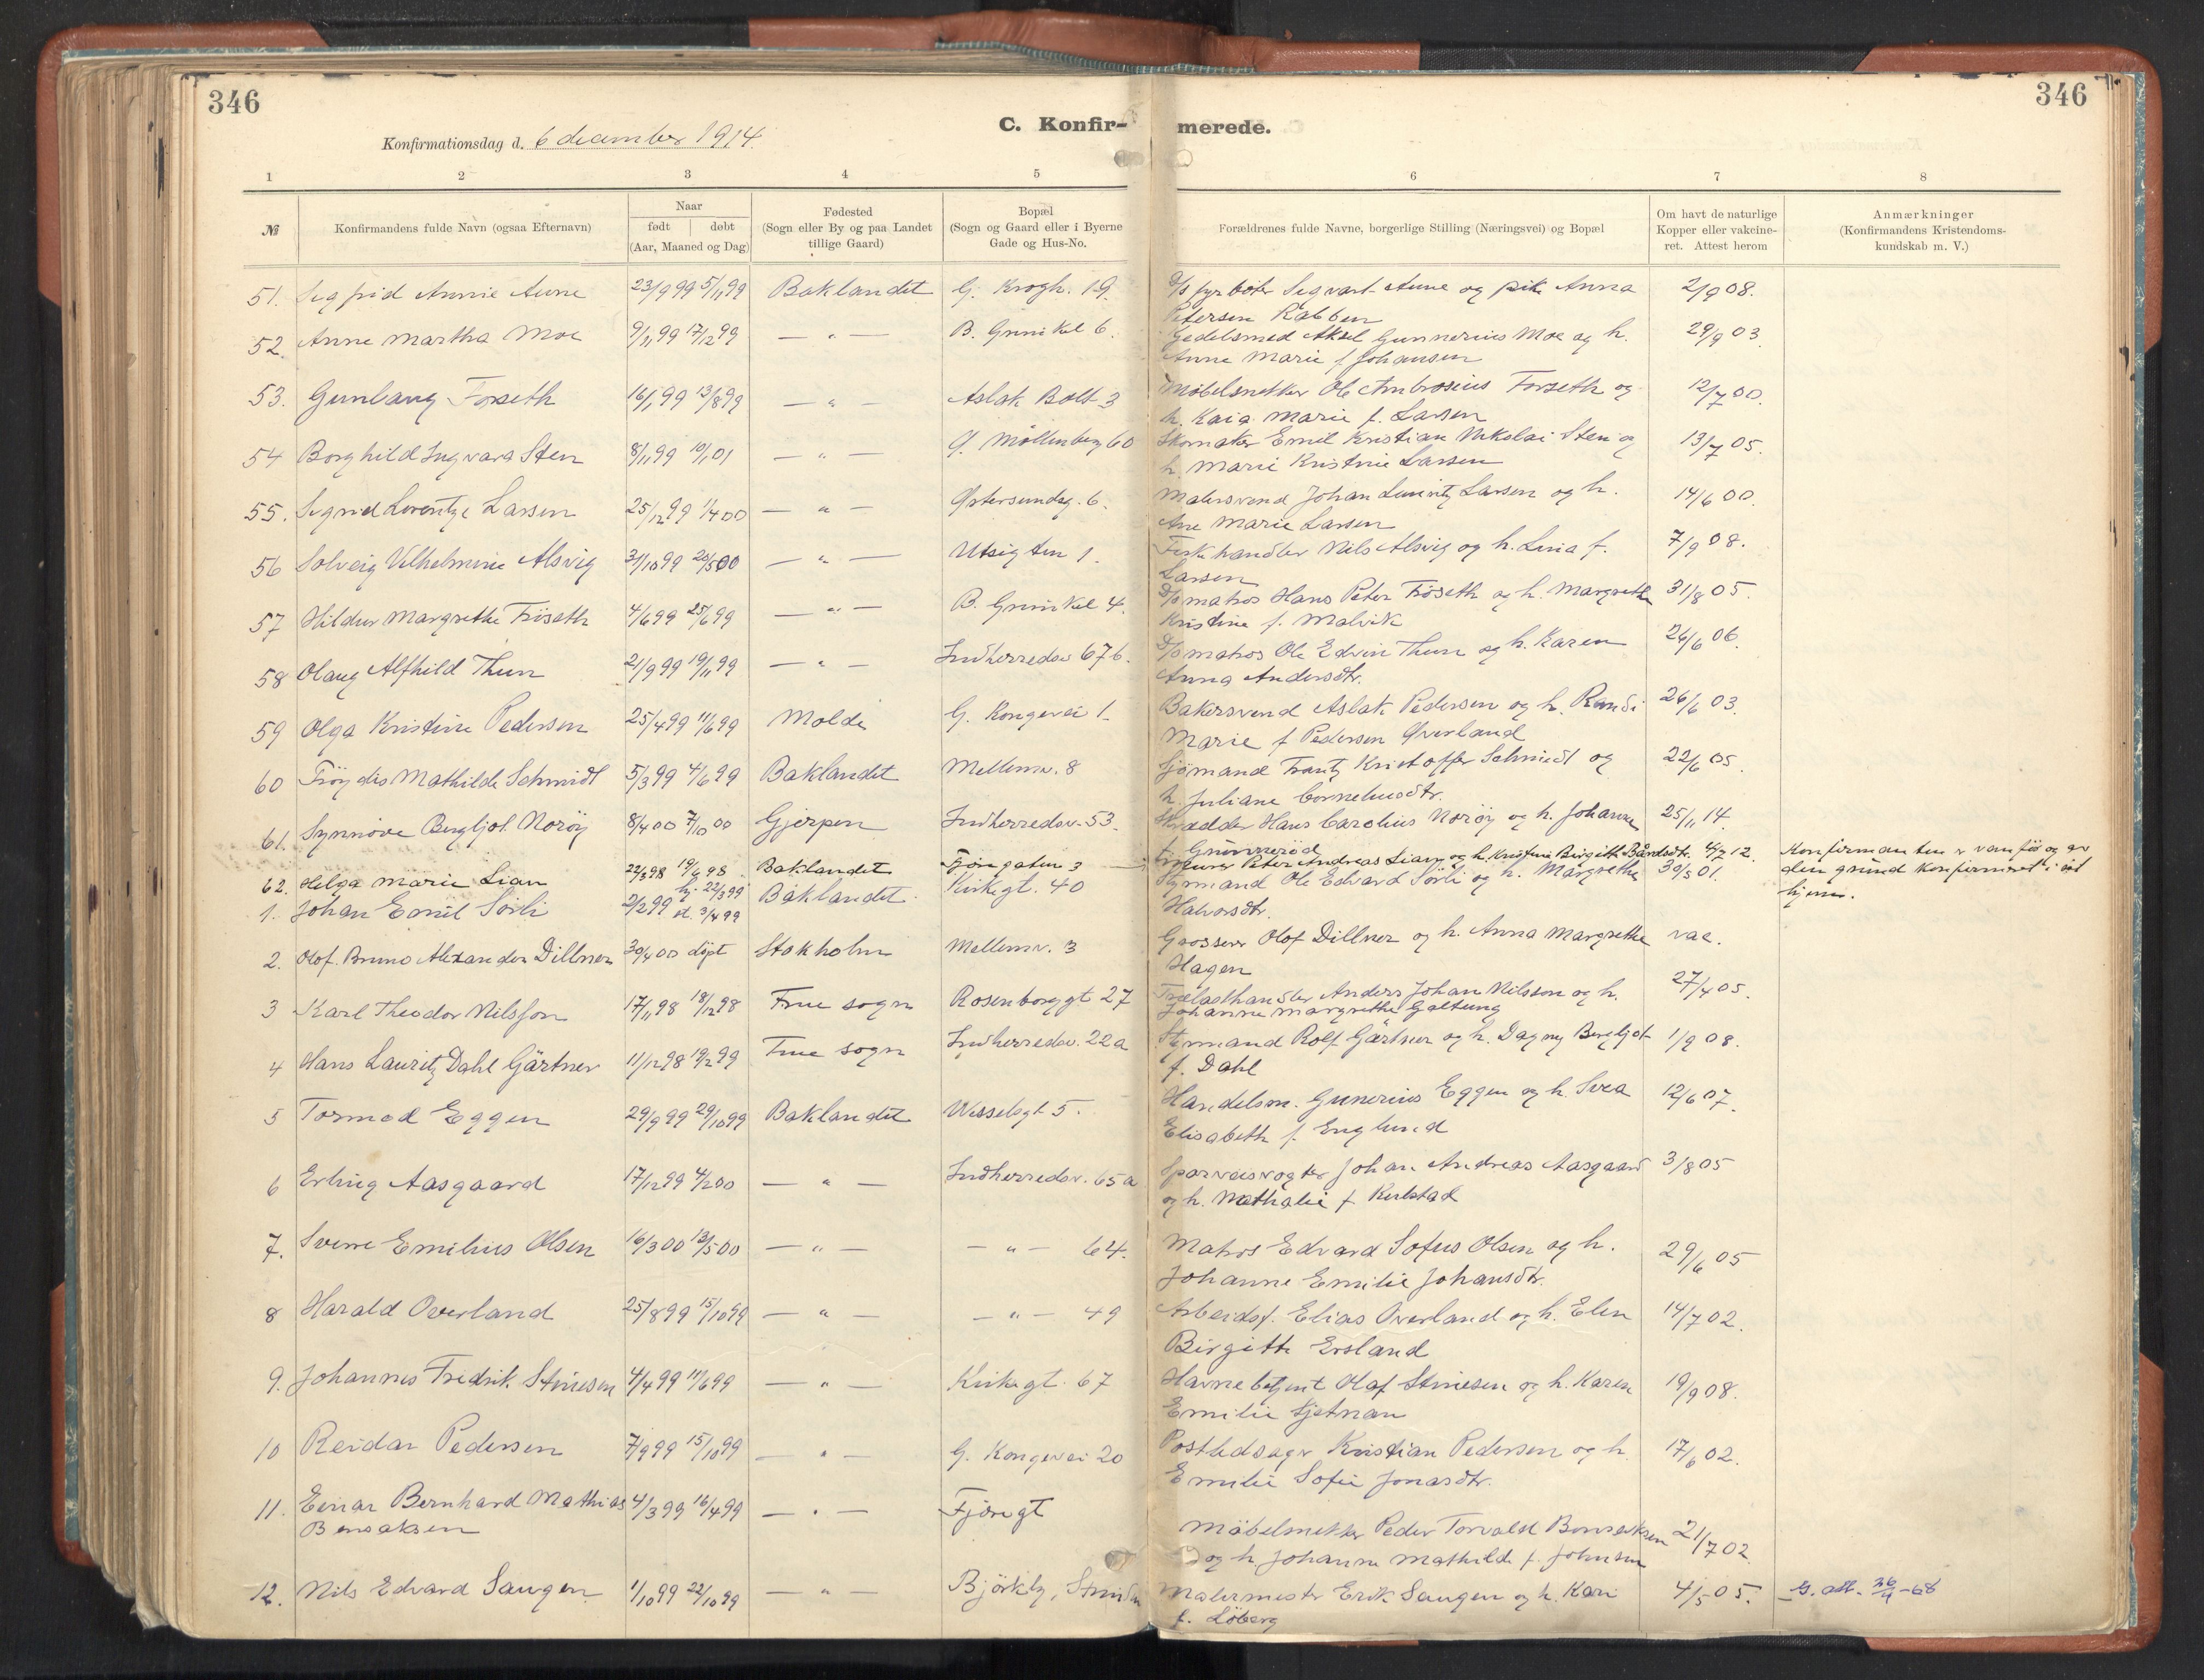 346
346
C. Konfir-
merede.
Konfirmationsdag d. 6 december 1914.
1 2 3 4 5 6 7 8
№
Konfirmandens fulde Navn (ogsaa Efternavn)
Naar
født døbt
(Aar, Maaned og Dag)
Fødested
(Sogn eller By og paa Landet
tillige Gaard)
Bopæl
(Sogn og Gaard eller i Byerne
Gade og Hus-No.
Forældrenes fulde Navne, borgerlige Stilling (Næringsvei) og Bopæl
Om havt de naturlige
Kopper eller vakcine-
ret. Attest herom
Anmærkninger
(Konfirmandens Kristendoms-
kundskab m. V.)
51. Sigfrid Annie Aune 23/9 99 5/11 99 Baklandet G. Krogh. 19. D/S fyrbøter Sigvart Aune og pike Anna 2/9 08.
Petersen Rabben
52. Anne Martha Moe 9/11 99 17/12 99 — " — B. Grinikel 6. Gedelsmed Aksel Gunnerius Moe og h. 29/9 03
Anne Marie f Johansen
53. Gunlaug Forseth 16/1 99 13/8 99 — " — Aslak Bolt 3 Möbelsnekker Ole Ambrosius Forseth og 12/7 00.
h. Kaia Marie f. Larsen
54 Borghild Ingvara Sten 8/11 99 10/1 01 — " — Ø. Möllenberg 60 Skomaker Emil Kristian Nikolai Sten og 13/7 05.
h. Marie Kristine Larsen
55. Sigrid Lorentze Larsen 25/12 99 1/4 00 — " — Østersundsg. 6. Malersvend Johan Lauritz Larsen og h. 14/6 00.
Ane Marie Larsen
56 Solveig Vilhelmine Alsvig 31/10 99 20/5 00 — " — Utsigten 1. Fiskehandler Nils Alsvig og h. Lina f. 7/9 08.
Larsen
57 Hildur Margrethe Fröseth 4/6 99 25/6 99 — " — B. Grinikel 4. D/S matros Hans Peter Fröseth og h. Margrethe 31/8 05.
Kristine f. Malvik
58 Olaug Alfhild Thun 21/9 99 19/11 99 — " — Indherredsv. 67 b. D/S matros Ole Edvin Thun og h. Karen 26/6 06.
Anna Andersdtr.
59 Olga Kristine Pedersen 25/4 99 11/6 99 Molde G. Kongevei 1. Bakersvend Aslak Pedersen og h. Randi 26/6 03.
Marie f Pedersen Øverland
60 Fröydis Mathilde Schmidt 5/3 99 4/6 99 Baklandet Mellemv. 8 Sjömand Frantz Kristoffer Schmidt og 22/6 05.
h. Juliane Corneliusdtr.
61. Synnöve Bergljot Noröy 8/4 00 7/10 00 Gjerpen Indherredsv. 53. Skrædder Hans Carolius Noröy og h. Johanne 25/11 14.
f. Grinneröd
62. Helga Marie Lian 22/3 98 19/6 98 Baklandet Fjæregaten 3 Peter Andreas Lian og h. Kristine Birgitte Bårdsdtr. 4/7 12. Konfirmanten er vanfør og av
1. Johan Emil Sörli 2/2 99 hj. 22/3 99 st. 3/4 99 Baklandet Kirkegt. 40 Styrmand Ole Edvard Sörli og h. Margrethe 30/5 01. den grund konfirmeret i sit
Halvorsdtr. hjem.
2. Olof Bruno Alexander Dillner 30/4 00 døpt Stokholm Mellemv. 3 Grosserer Olof Dillner og h. Anna Margrethe vac.
Hagen
3 Karl Theodor Nilsson 17/11 98 18/12 98 Frue sogn Rosenborggt 27 Trælasthandler Anders Johan Nilsson og h. 27/4 05.
Johanne Margrethe Galtung
4 Hans Lauritz Dahl Gärtner 11/12 98 19/2 99 Frue sogn Indherredsv. 22a Styrmand Rolf Gärtner og h. Dagny Bergljot 1/9 08.
f. Dahl
5 Tormod Eggen 29/9 99 29/10 99 Baklandet Wesselsgt 5. Handelsm. Gunerius Eggen og h. Svea 12/6 07.
Elisabeth f. Englund
6 Erling Aasgaard 17/12 99 4/2 00 — " — Indherredsv. 65a Sporveisvogter Johan Andreas Aasgaard 3/8 05
og h. Mathalie f Rulstad
7. Sverre Emilius Olsen 16/3 00 13/5 00 — " — — " — 64. Matros Edvard Sofus Olsen og h. 29/6 05
Johanne Emilie Johansdtr.
8 Harald Overland 25/8 99 15/10 99 — " — — " — 49 Arbeidsf. Elias Overland og h. Elen 14/7 02.
Birgitte Ersland
9. Johannes Fredrik Stinesen 4/4 99 11/6 99 — " — Kirkegt. 67 Havnebetjent Olaf Stinesen og h. Karen 19/9 08.
Emilie Sjetnan
10 Reidar Pedersen 7/9 99 15/10 99 — " — G. Kongevei 20 Postledsager Kristian Pedersen og h. 17/6 02.
Emilie Sofie Jonasdtr.
11. Einar Bernhard Mathias 4/3 99 16/4 99 — " — Fjæregt
Bensaksen Möbelsnekker Peder Torvald Bonsaksen 21/7 02
og h. Johanne Mathilde f. Johnsen
12. Nils Edvard Saugen 1/10 99 22/10 99 — " — Björkly, Strinda Malermester Erik Saugen og h. Kari 4/5 05. G. att. 26/4-68
f. Löberg